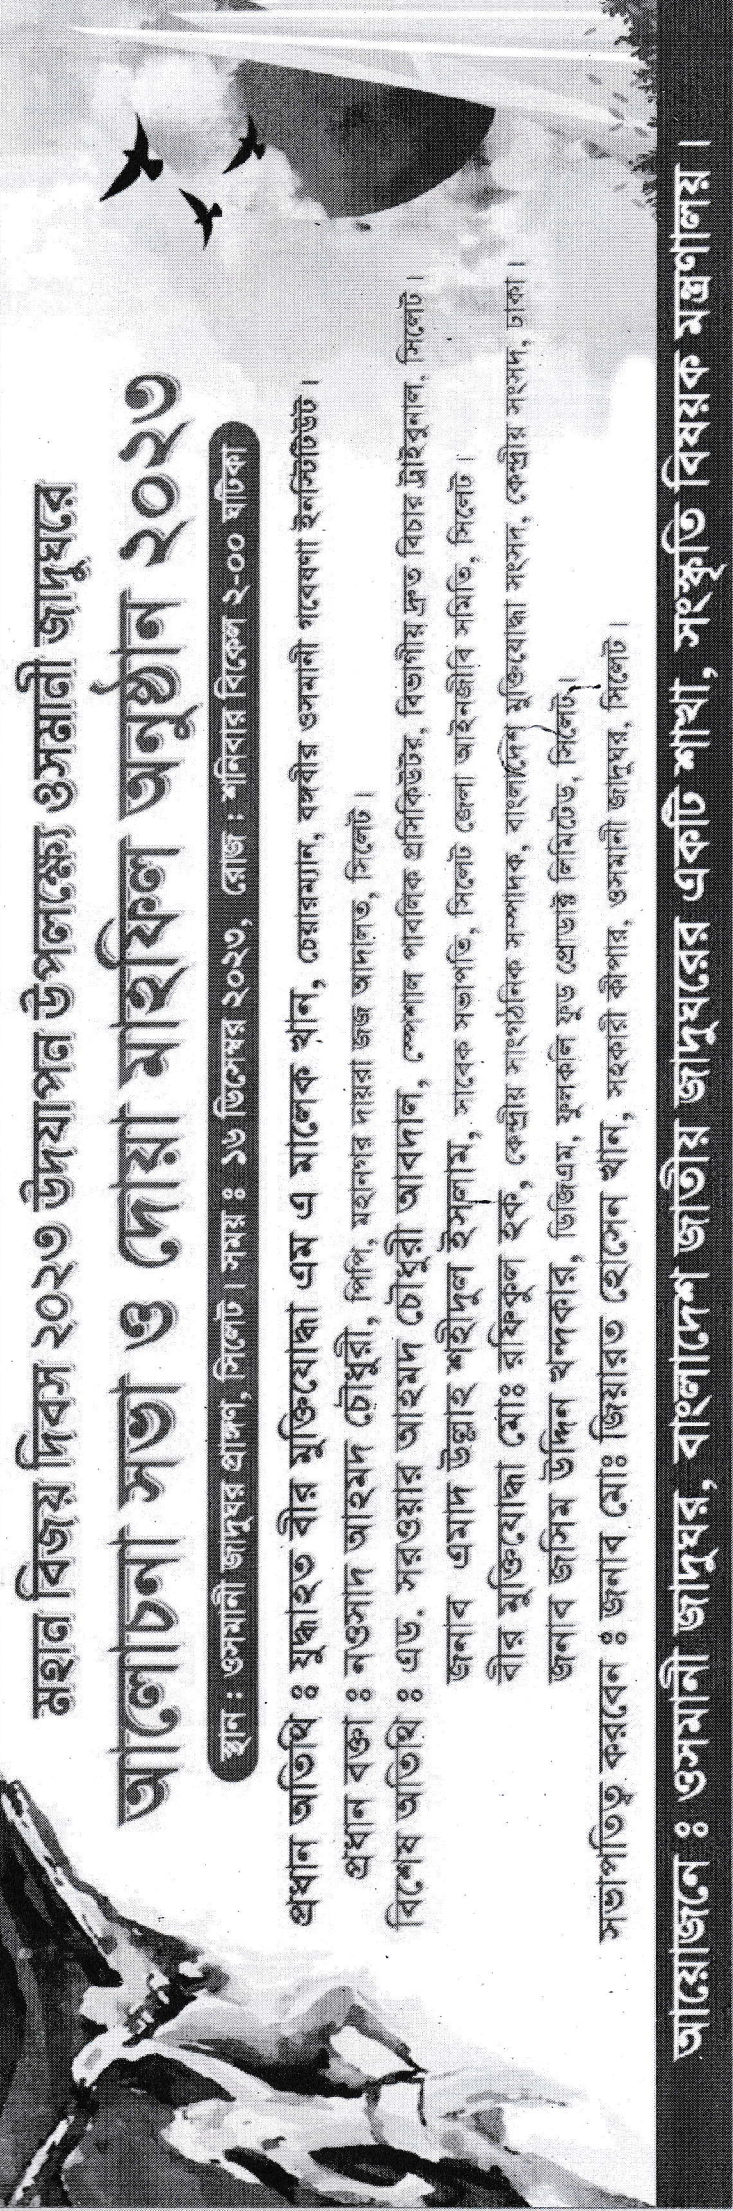 মহান বিজয় দিবস ২০২৩ উদযাপন উপলক্ষ্যে ওসমানী জাদুঘরে
আলোচনা সভা ও দোয়া মাহফিল অনুষ্ঠান ২০২৩
স্থান : ওসমানী জাদুঘর প্রাঙ্গণ, সিলেট। সময় ঃ ১৬ ডিসেম্বর ২০২৩, রোজ : শনিবার বিকেল ২-০০ ঘটিকা
প্রধান অতিথি ঃ যুদ্ধাহত বীর মুক্তিযোদ্ধা এম এ মালেক খান, চেয়ারম্যান, বঙ্গবীর ওসমানী গবেষণা ইনস্টিটিউট।
প্রধান বক্তা ঃ নওসাদ আহমদ চৌধুরী, পিপি, মহানগর দায়রা জজ আদালত, সিলেট।
বিশেষ অতিথি ঃ এড. সরওয়ার আহমদ চৌধুরী আবদাল, স্পেশাল পাবলিক প্রসিকিউটর, বিভাগীয় দ্রুত বিচার ট্রাইবুনাল, সিলেট।
জনাব এমাদ উল্লাহ শহীদুল ইসলাম, সাবেক সভাপতি, সিলেট জেলা আইনজীবি সমিতি, সিলেট।
বীর মুক্তিযোদ্ধা মোঃ রফিকুল হক, কেন্দ্রীয় সাংগঠনিক সম্পাদক, বাংলাদেশ মুক্তিযোদ্ধা সংসদ, কেন্দ্রীয় সংসদ, ঢাকা।
জনাব জসিম উদ্দিন খন্দকার, ডিজিএম, ফুলকলি ফুড প্রোডাক্ট লিমিটেড, সিলেট।
সভাপতিত্ব করবেন ঃ জনাব মোঃ জিয়ারত হোসেন খান, সহকারী কীপার, ওসমানী জাদুঘর, সিলেট।
আয়োজনে ঃ ওসমানী জাদুঘর, বাংলাদেশ জাতীয় জাদুঘরের একটি শাখা, সংস্কৃতি বিষয়ক মন্ত্রণালয়।